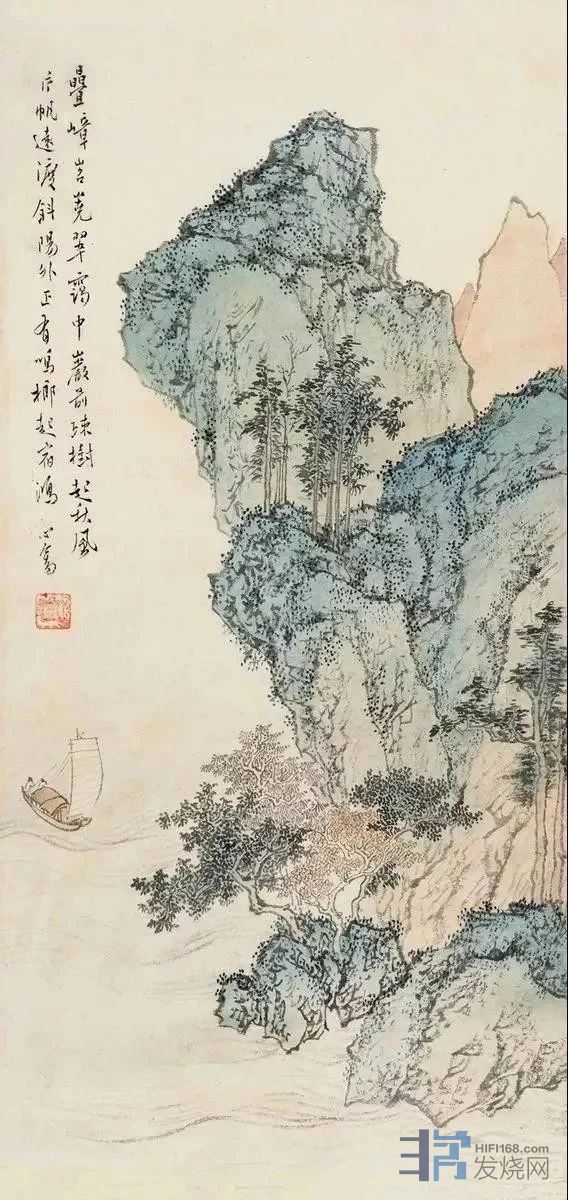 疊嶂岧嶤翠靄中巖前疎樹起秋風
片帆遠渡斜陽外正有鳴榔起宿鴻 心畬
HIFI168.com
发烧网